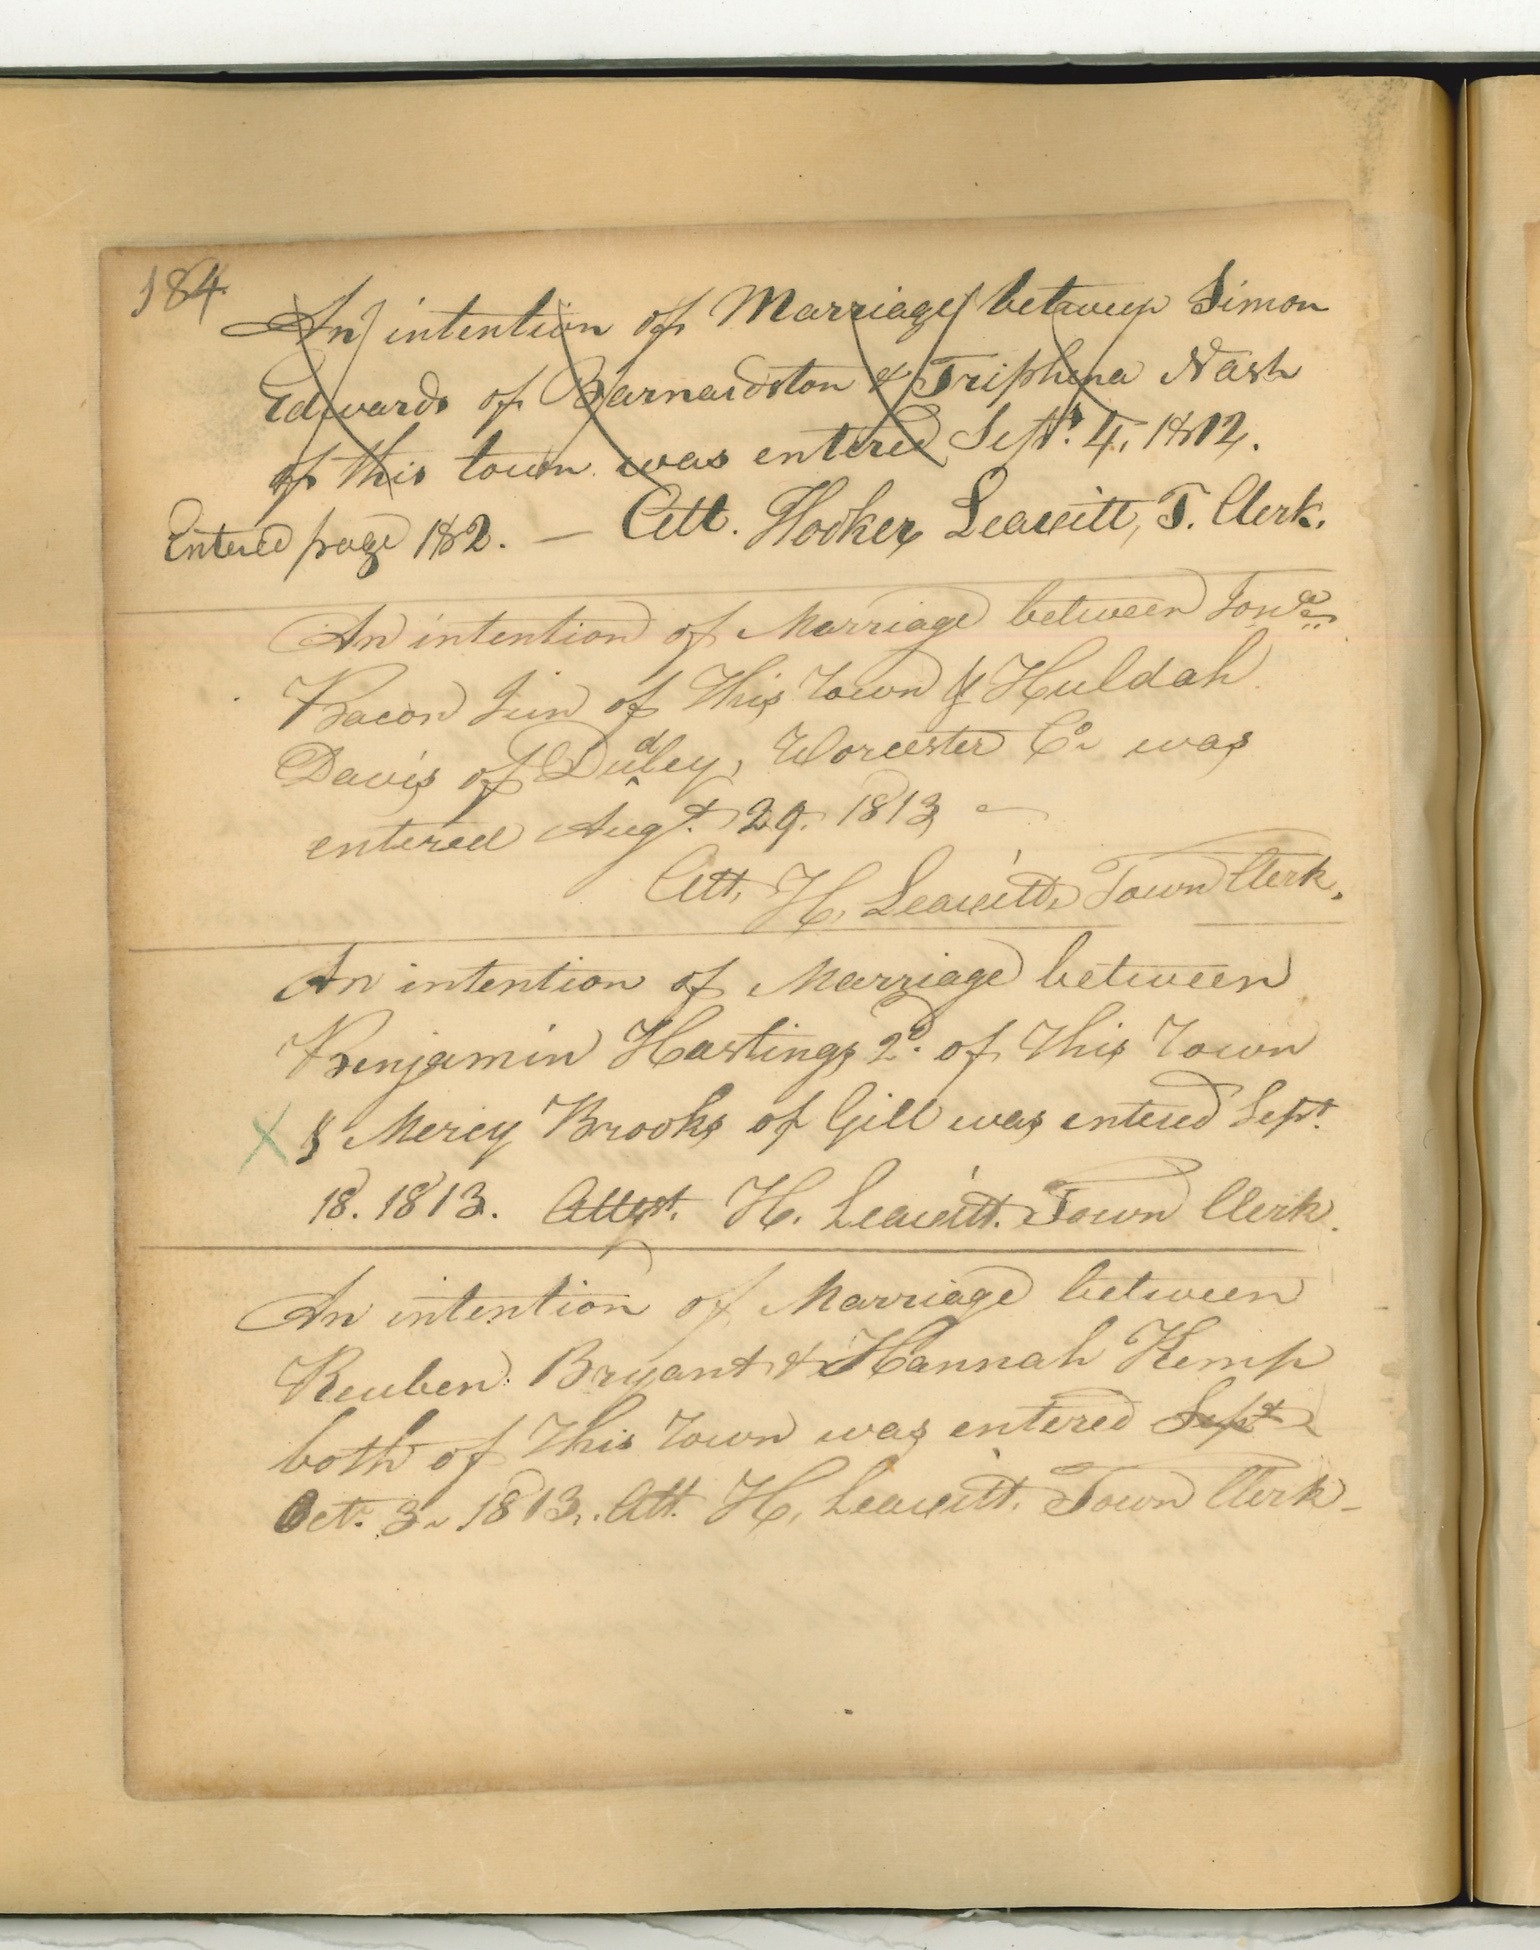 184
An intention of Marriage between Simon
Edwards of Barnardston & Triphena Nash
of this town was entered Sept. 4, 1812.
Entered page 182. — Att. Hooker Leavitt, T. Clerk.
An intention of Marriage between Jona
Bacon Jun of this Town & Huldah
Davis of Dudley, Worcester Co. was
entered Augt. 29. 1813 —
Att. H. Leavitt, Town Clerk.
An intention of Marriage between
Benjamin Hastings 2d. of this Town
X & Mercy Brooks of Gill was entered Sept.
18. 1813. Attest. H. Leavitt. Town Clerk.
An intention of Marriage between
Reuben Bryant & Hannah Kemp
both of this Town was entered Sept
Oct. 3. 1813. Att. H. Leavitt. Town Clerk-